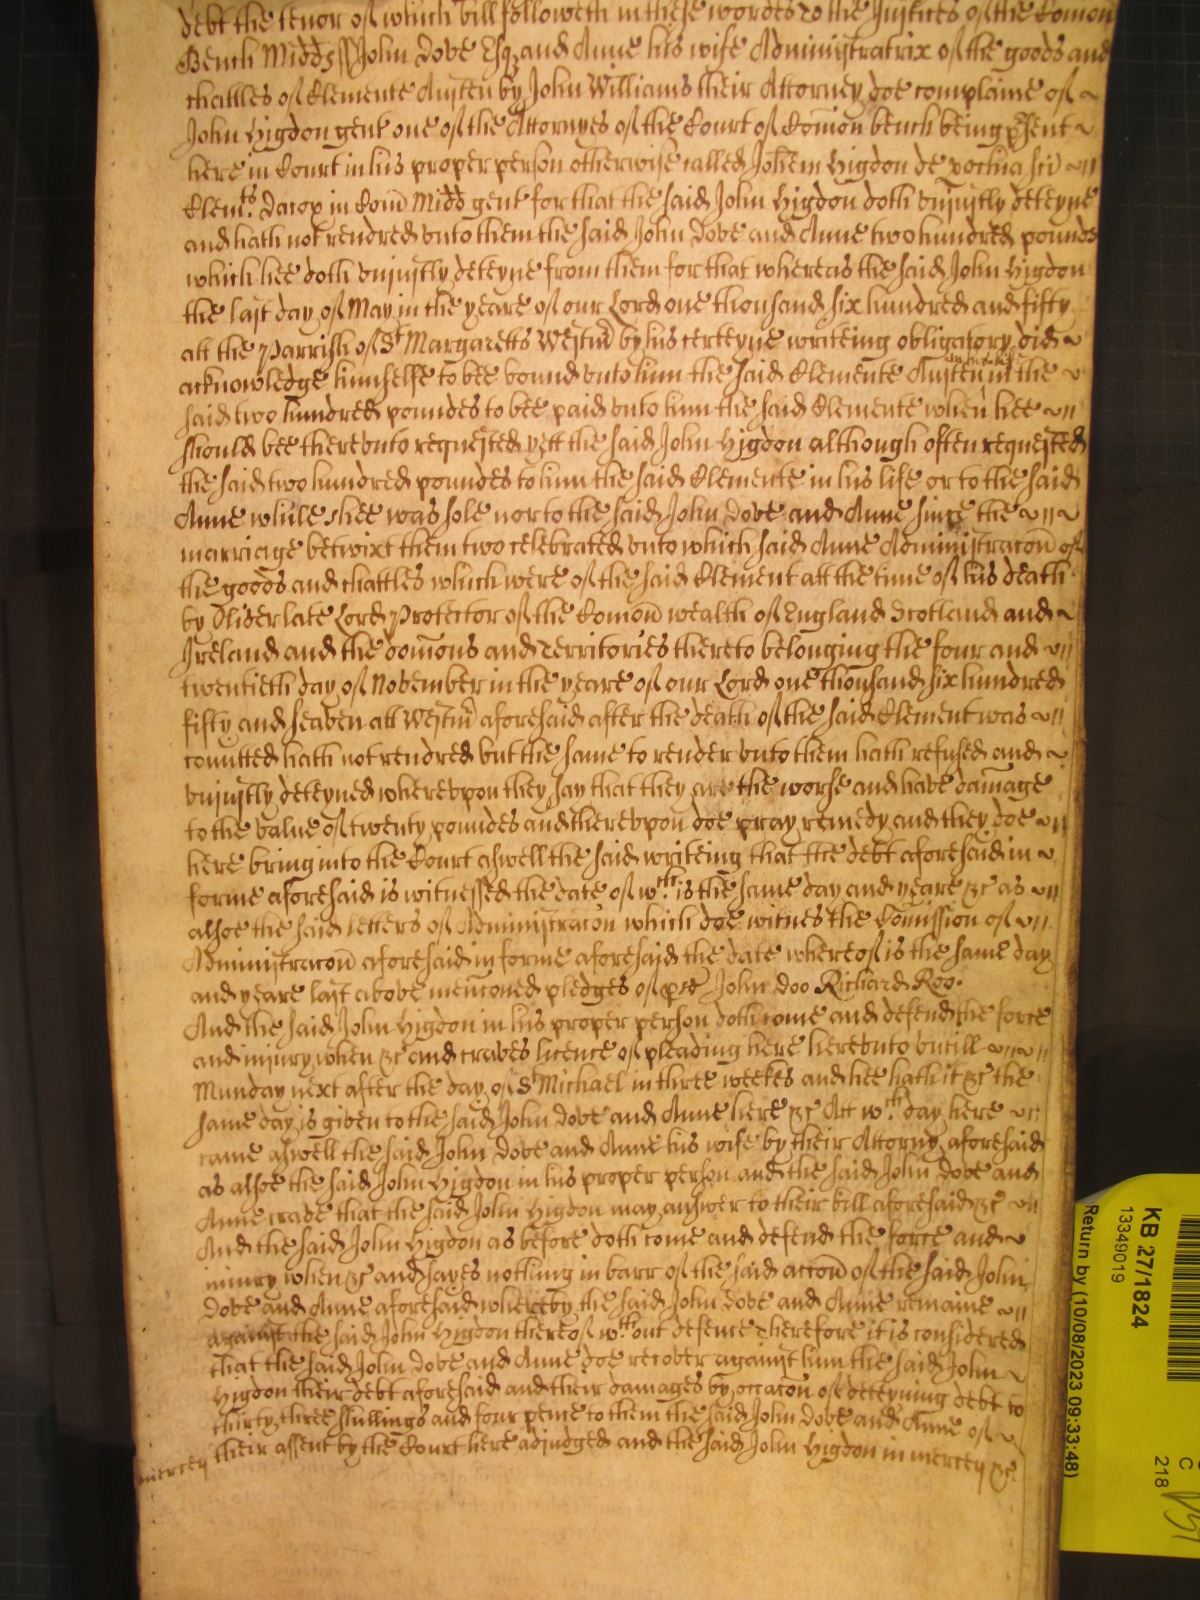 debt the tenor of which bill followeth in these wordes to the Justices of the Comon
Bench Midds ss John Dove Esq and Anne his wife Administratrix of the goods and
chattles of Clemente Austen by John Williams their Attorney doe complaine of
John Higdon gent one of the Attornyes of the Court of Comon bench being psent
here in Court in his proper person otherwise called Johem Higdon de pochia sci
Clemtis Dacor in Com Midds gent for that the said John Higdon doth unjustly deteyne
and hath not rendred unto them the said John Dove and Anne two hundred pounds
which hee doth unjustly deteyne from them for that whereas the said John Higdon
the last day of May in the yeare of our Lord one thousand six hundred and fifty
att the Parrish of St Margaretts Westm by his certeyne writeing obligatory did
acknowledge himselfe to bee bound unto him the said Clemente Austen in the
said two hundred poundes to bee paid unto him the said Clemente when hee
should bee thereunto requested yett the said John Higdon although often requested
the said two hundred poundes to him the said Clemente in his life or to the said
Anne whiles shee was sole nor to the said John Dove and Anne since the
marriage betwixt them two celebrated unto which said Anne Administracon of
the goods and chattles which were of the said Clement att the time of his death
by Oliver late Lord Protector of the Comon wealth of England Scotland and
Ireland and the domions and Territories thereto belonging the four and
twentieth day of November in the yeare of our Lord one thousand six hundred
fifty and seaven att Westm aforesaid after the death of the said Clement was
comitted hath not rendred but the same to render unto them hath refused and
unjustly deteyned whereupon they say that they are the worse and have damage
to the value of twenty poundes and thereupon doe pray remedy and they doe
here bring into the Court aswell the said writeing that the debt aforesaid in
forme aforesaid is witnessed the date of wch is the same day and yeare &c as
alsoe the said letters of Administracon which doe witnes the Comission of
Administracon aforesaid in forme aforesaid the date whereof is the same day
and yeare last above menconed pledges of John Doo Richard Roo.
And the said John Higdon in his proper person doth come and defend the force
and injury when &c and craves licence of pleading here hereunto untill
Munday next after the day of St Michael in three weekes and hee hath it &c the
same day is given to the said John Dove and Anne here &c Att wch day here
came aswell the said John Dove and Anne his wife by their Attorny aforesaid
as alsoe the said John Higdon in his proper person and the said John Dove and
Anne crave that the said John Higdon may answer to their bill aforesaid &c
And the said John Higdon as before doth come and defend the force and
injury when &c and sayes nothing in barr of the said accon of the said John
Dove and Anne aforesaid whereby the said John Dove and Anne remaine
against the said John Higdon thereof wthout defence Therefore it is considered
that the said John Dove and Anne doe recover against him the said John
Higdon their debt aforesaid and their damages by occacon of deteyning debt to
thirty three shillings and four pence to them the said John Dove and Anne of
their assent by the Court here adjudged and the said John Higdon in mercey &c
mercey
KB 27/1824
13349019
Return by (10/08/2023 09:33:48)
C
218